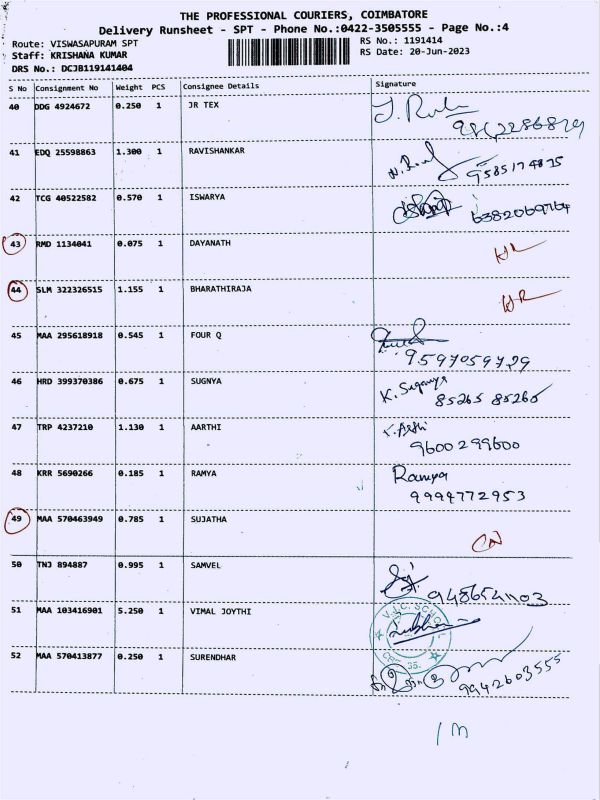 THE PROFESSIONAL COURIERS, COIMBATORE
Delivery Runsheet - SPT - Phone No.:0422-3505555 - Page No.:4
Route: VISWASAPURAM SPT
RS No.: 1191414
Staff: KRISHANA KUMAR
RS Date: 20-Jun-2023
DRS No.: DCJB119141404
S No Consignment No Weight PCS Consignee Details Signature
40 DDG 4924672 0.250 1 JR TEX
41 EDQ 25598863 1.300 1 RAVISHANKAR
9585174875
42 TCG 40522582 0.570 1 ISWARYA
6382069764
43 RMD 1134041 0.075 1 DAYANATH
44 SLM 322326515 1.155 1 BHARATHIRAJA
45 MAA 295618918 0.545 1 FOUR Q
9597059729
46 HRD 399370386 0.675 1 SUGNYA K. Suganya
85265 85265
47 TRP 4237210 1.130 1 AARTHI
9600299600
48 KRR 5690266 0.185 1 RAMYA Ramya
9994772953
49 MAA 570463949 0.785 1 SUJATHA
50 TNJ 894887 0.995 1 SAMVEL
9486541103
51 MAA 103416901 5.250 1 VIMAL JOYTHI
52 MAA 570413877 0.250 1 SURENDHAR
9942603555